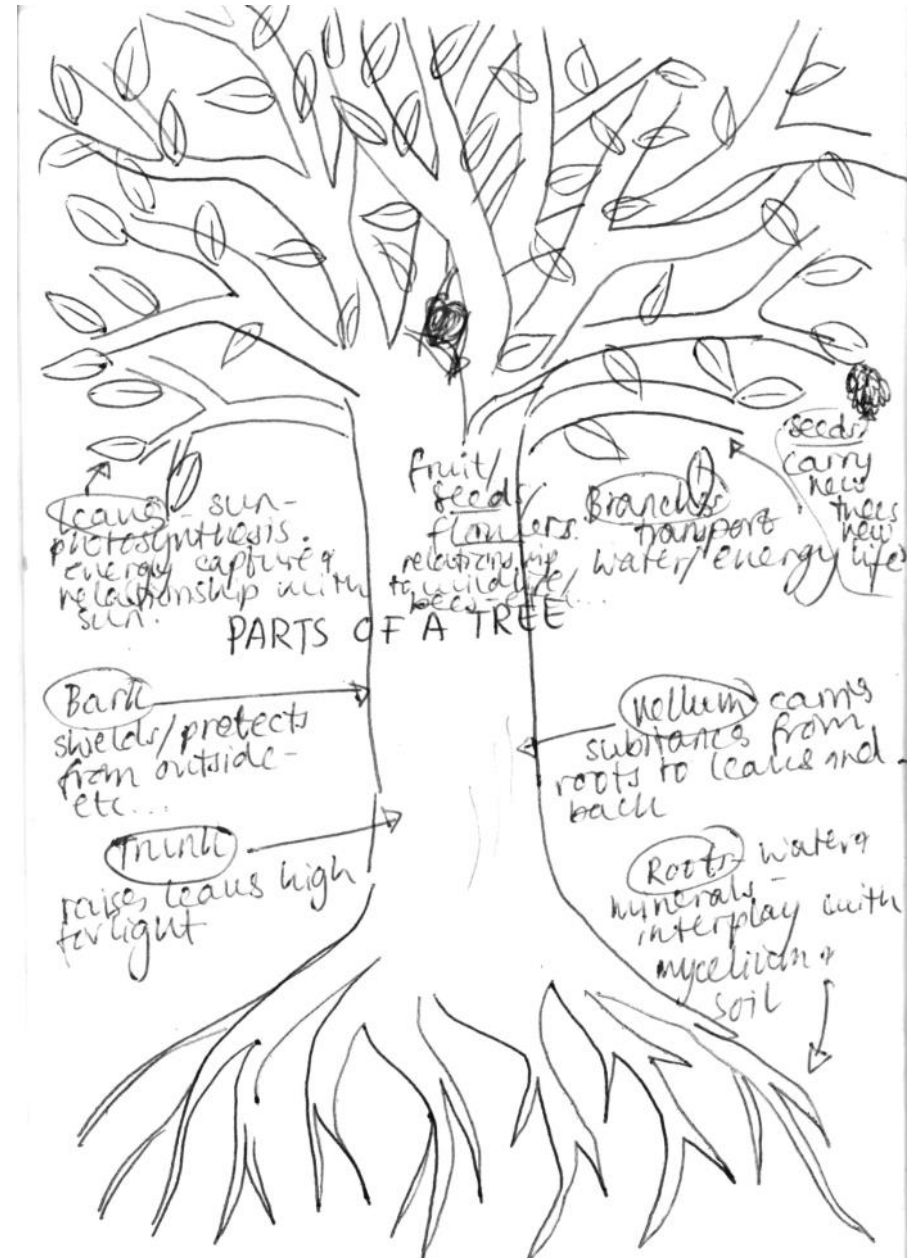 Leaves - sun-
photosynthesis.
energy capture &
relationship with
sun.
fruit/
seeds/
flowers.
relationship
to wildlife/
bees - etc...
Branches
transport
water/energy
seeds/
carry
new
trees
new
life
PARTS OF A TREE
Bark
shields/protects
from outside-
etc...
Trunk
raises leaves high
for light
carries
substances from
roots to leaves and
back
Roots - water &
minerals -
interplay with
mycelium &
soil